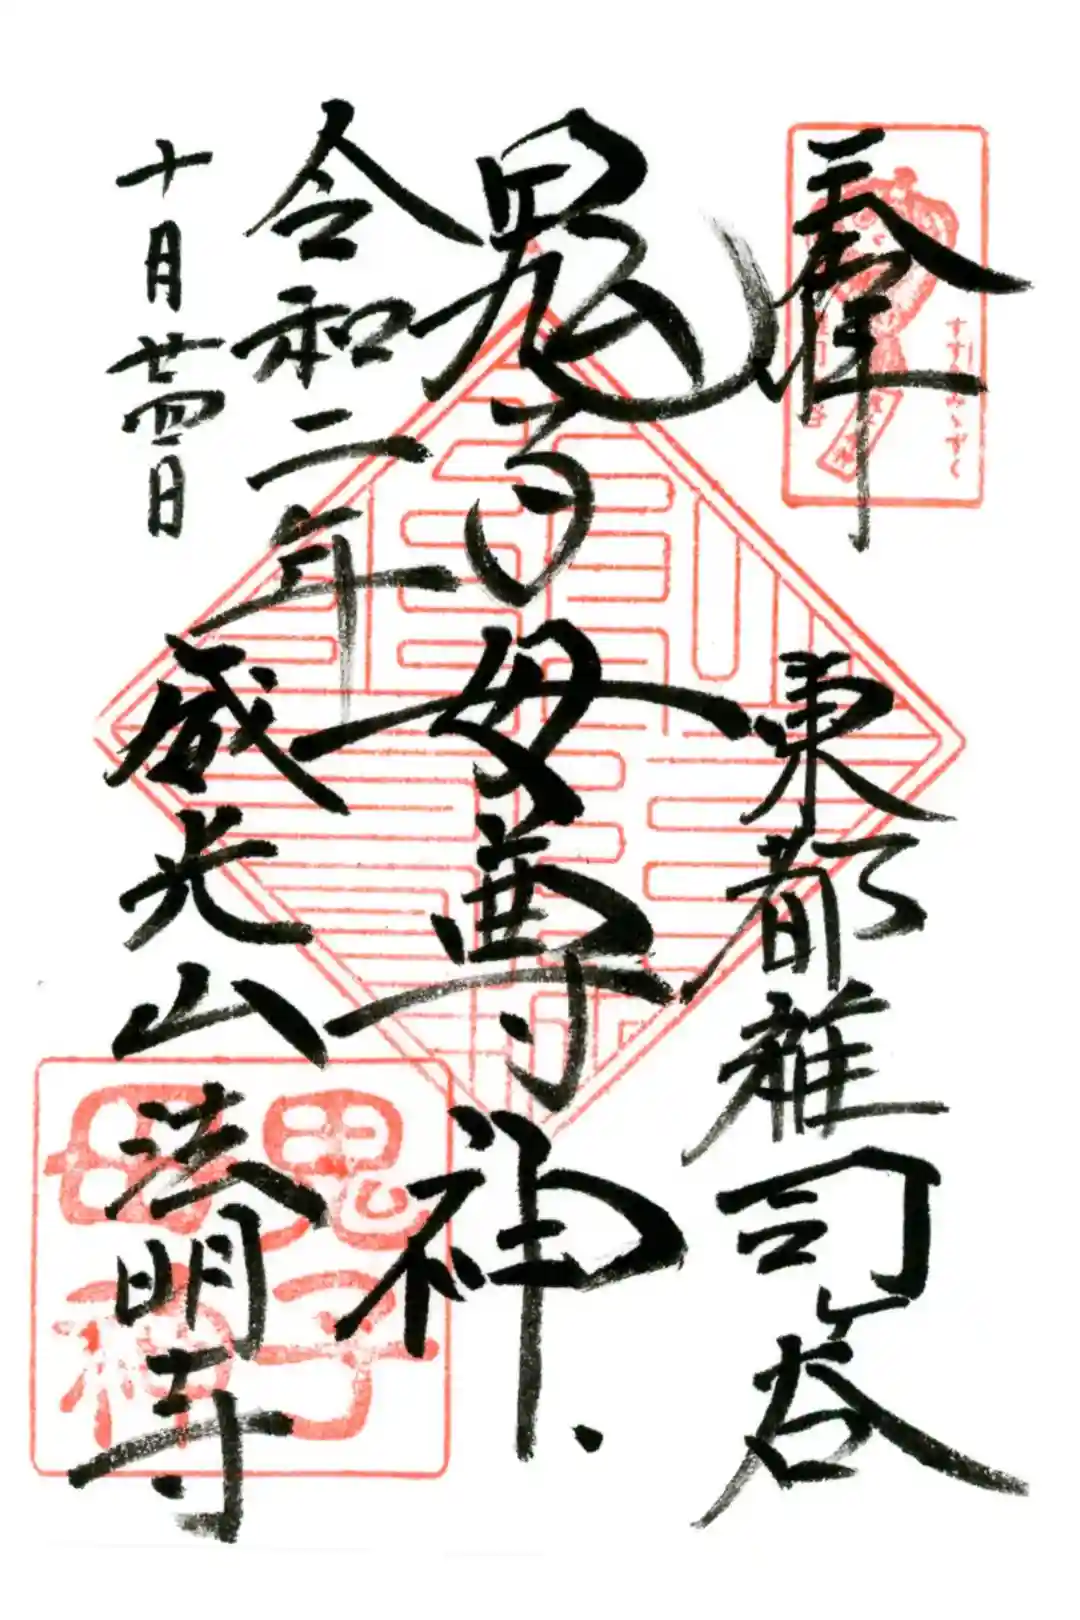 奉拝
東都雑司ケ谷
鬼子母尊神
令和二年
十月廿四日
威光山
法明寺
すすきみゝずく
鬼子
母神